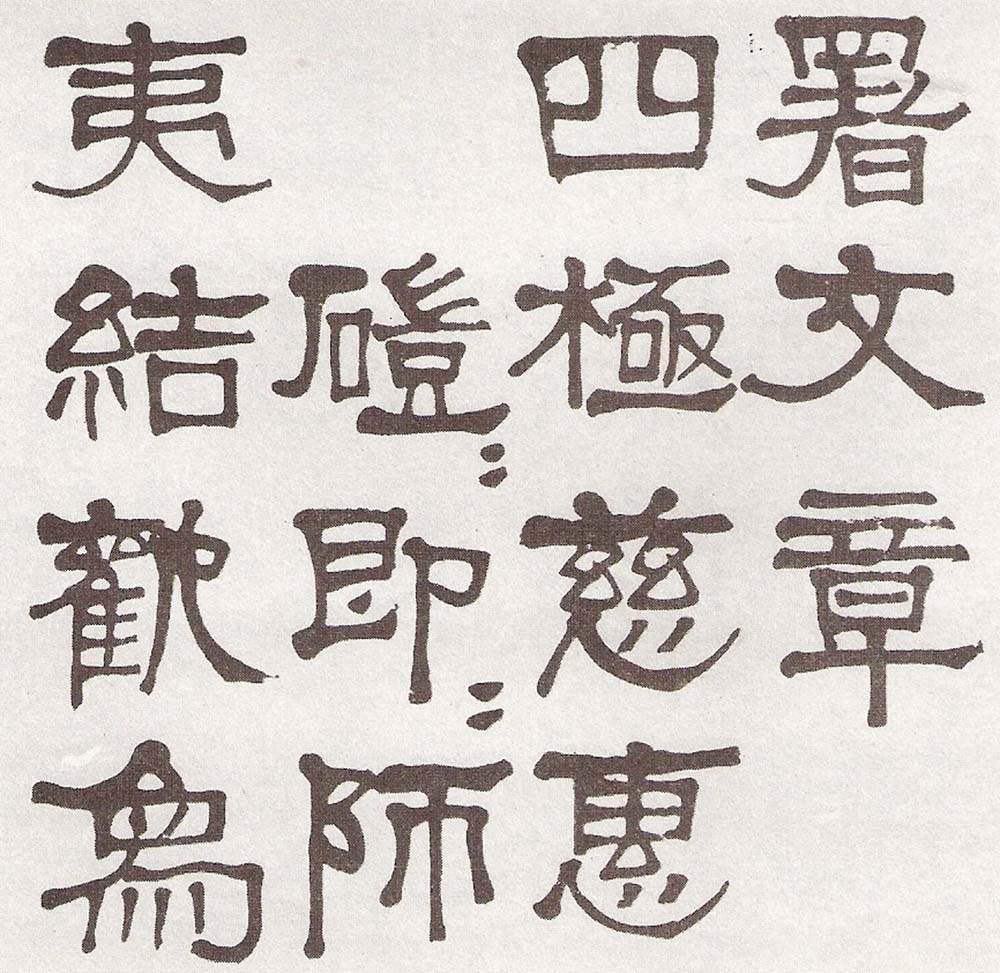 署文章
四極慈惠
磑〻即〻師
夷結歡象